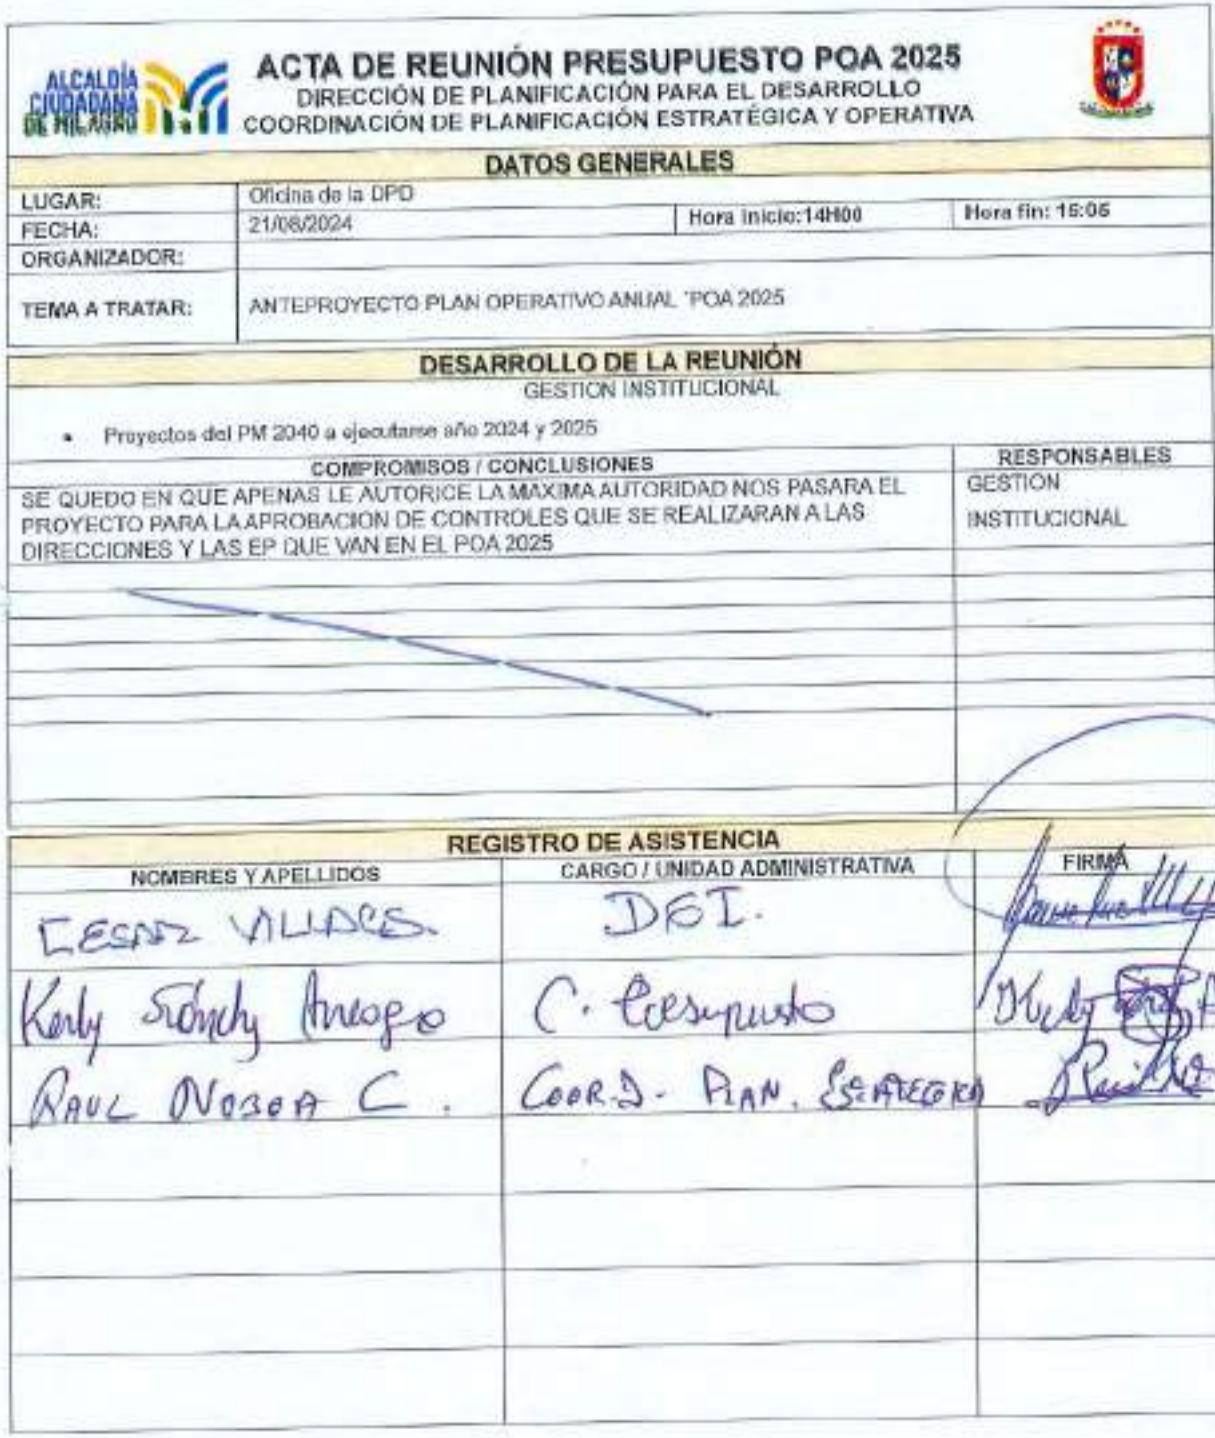 ALCALDÍA
CIUDADANA
DE MILAGRO
ACTA DE REUNIÓN PRESUPUESTO POA 2025
DIRECCIÓN DE PLANIFICACIÓN PARA EL DESARROLLO
COORDINACIÓN DE PLANIFICACIÓN ESTRATÉGICA Y OPERATIVA
DATOS GENERALES
LUGAR: Oficina de la DPD
FECHA: 21/08/2024 Hora inicio:14H00 Hora fin: 15:05
ORGANIZADOR:
TEMA A TRATAR: ANTEPROYECTO PLAN OPERATIVO ANUAL "POA 2025
DESARROLLO DE LA REUNIÓN
GESTION INSTITUCIONAL
• Proyectos del PM 2040 a ejecutarse año 2024 y 2025
COMPROMISOS / CONCLUSIONES RESPONSABLES
SE QUEDO EN QUE APENAS LE AUTORICE LA MAXIMA AUTORIDAD NOS PASARA EL GESTION
PROYECTO PARA LA APROBACION DE CONTROLES QUE SE REALIZARAN A LAS INSTITUCIONAL
DIRECCIONES Y LAS EP QUE VAN EN EL POA 2025
REGISTRO DE ASISTENCIA
NOMBRES Y APELLIDOS CARGO / UNIDAD ADMINISTRATIVA FIRMA
CESAR
Kerly C. Presupuesto
RAUL NOBOA C. COORD. PLAN. ESTRATEGICA